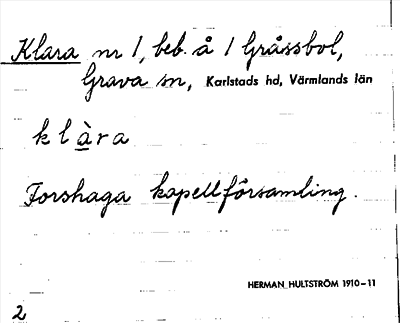 Klara nr 1, beb. å 1 Gråssbol,
Grava sn, Karlstads hd, Värmlands län
k l à r a
Forshaga kapellförsamling.
HERMAN HULTSTRÖM 1910-11
2